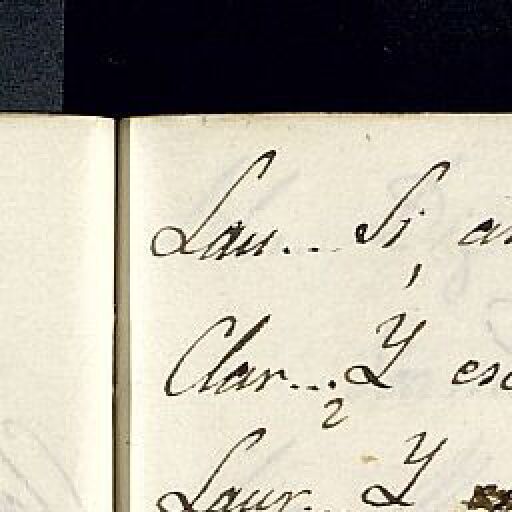 Lau... Si, a
Clar... Y es
2
Laur.. Y